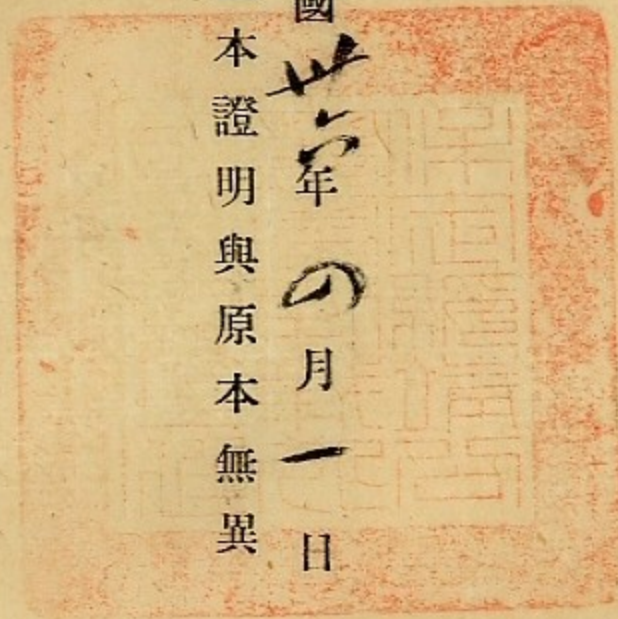 國卅六年四月一日
本證明與原本無異